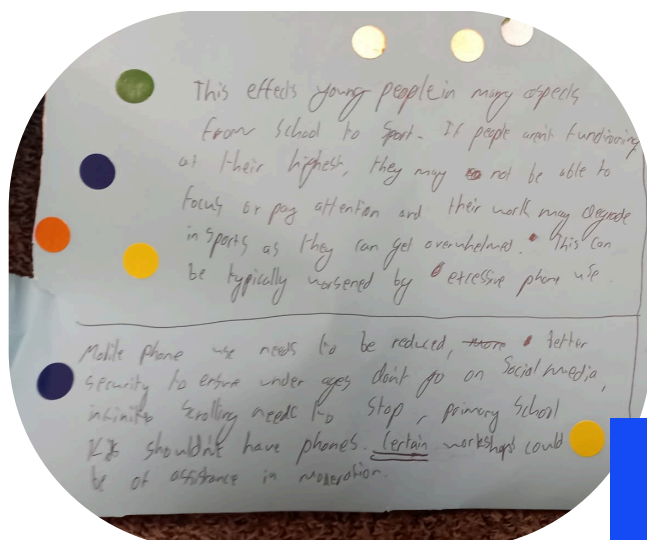 This effects young people in many aspects
from school to sport. If people aren't functioning
at their highest, they may not be able to
focus or pay attention and their work may degrade
in sports as they can get overwhelmed. This can
be typically worsened by excessive phone use.
Mobile phone use needs to be reduced, more better
security to ensure under ages don't go on Social media,
infinite scrolling needs to stop, primary School
Kids shouldn't have phones. Certain workshops could
be of assistance in moderation.